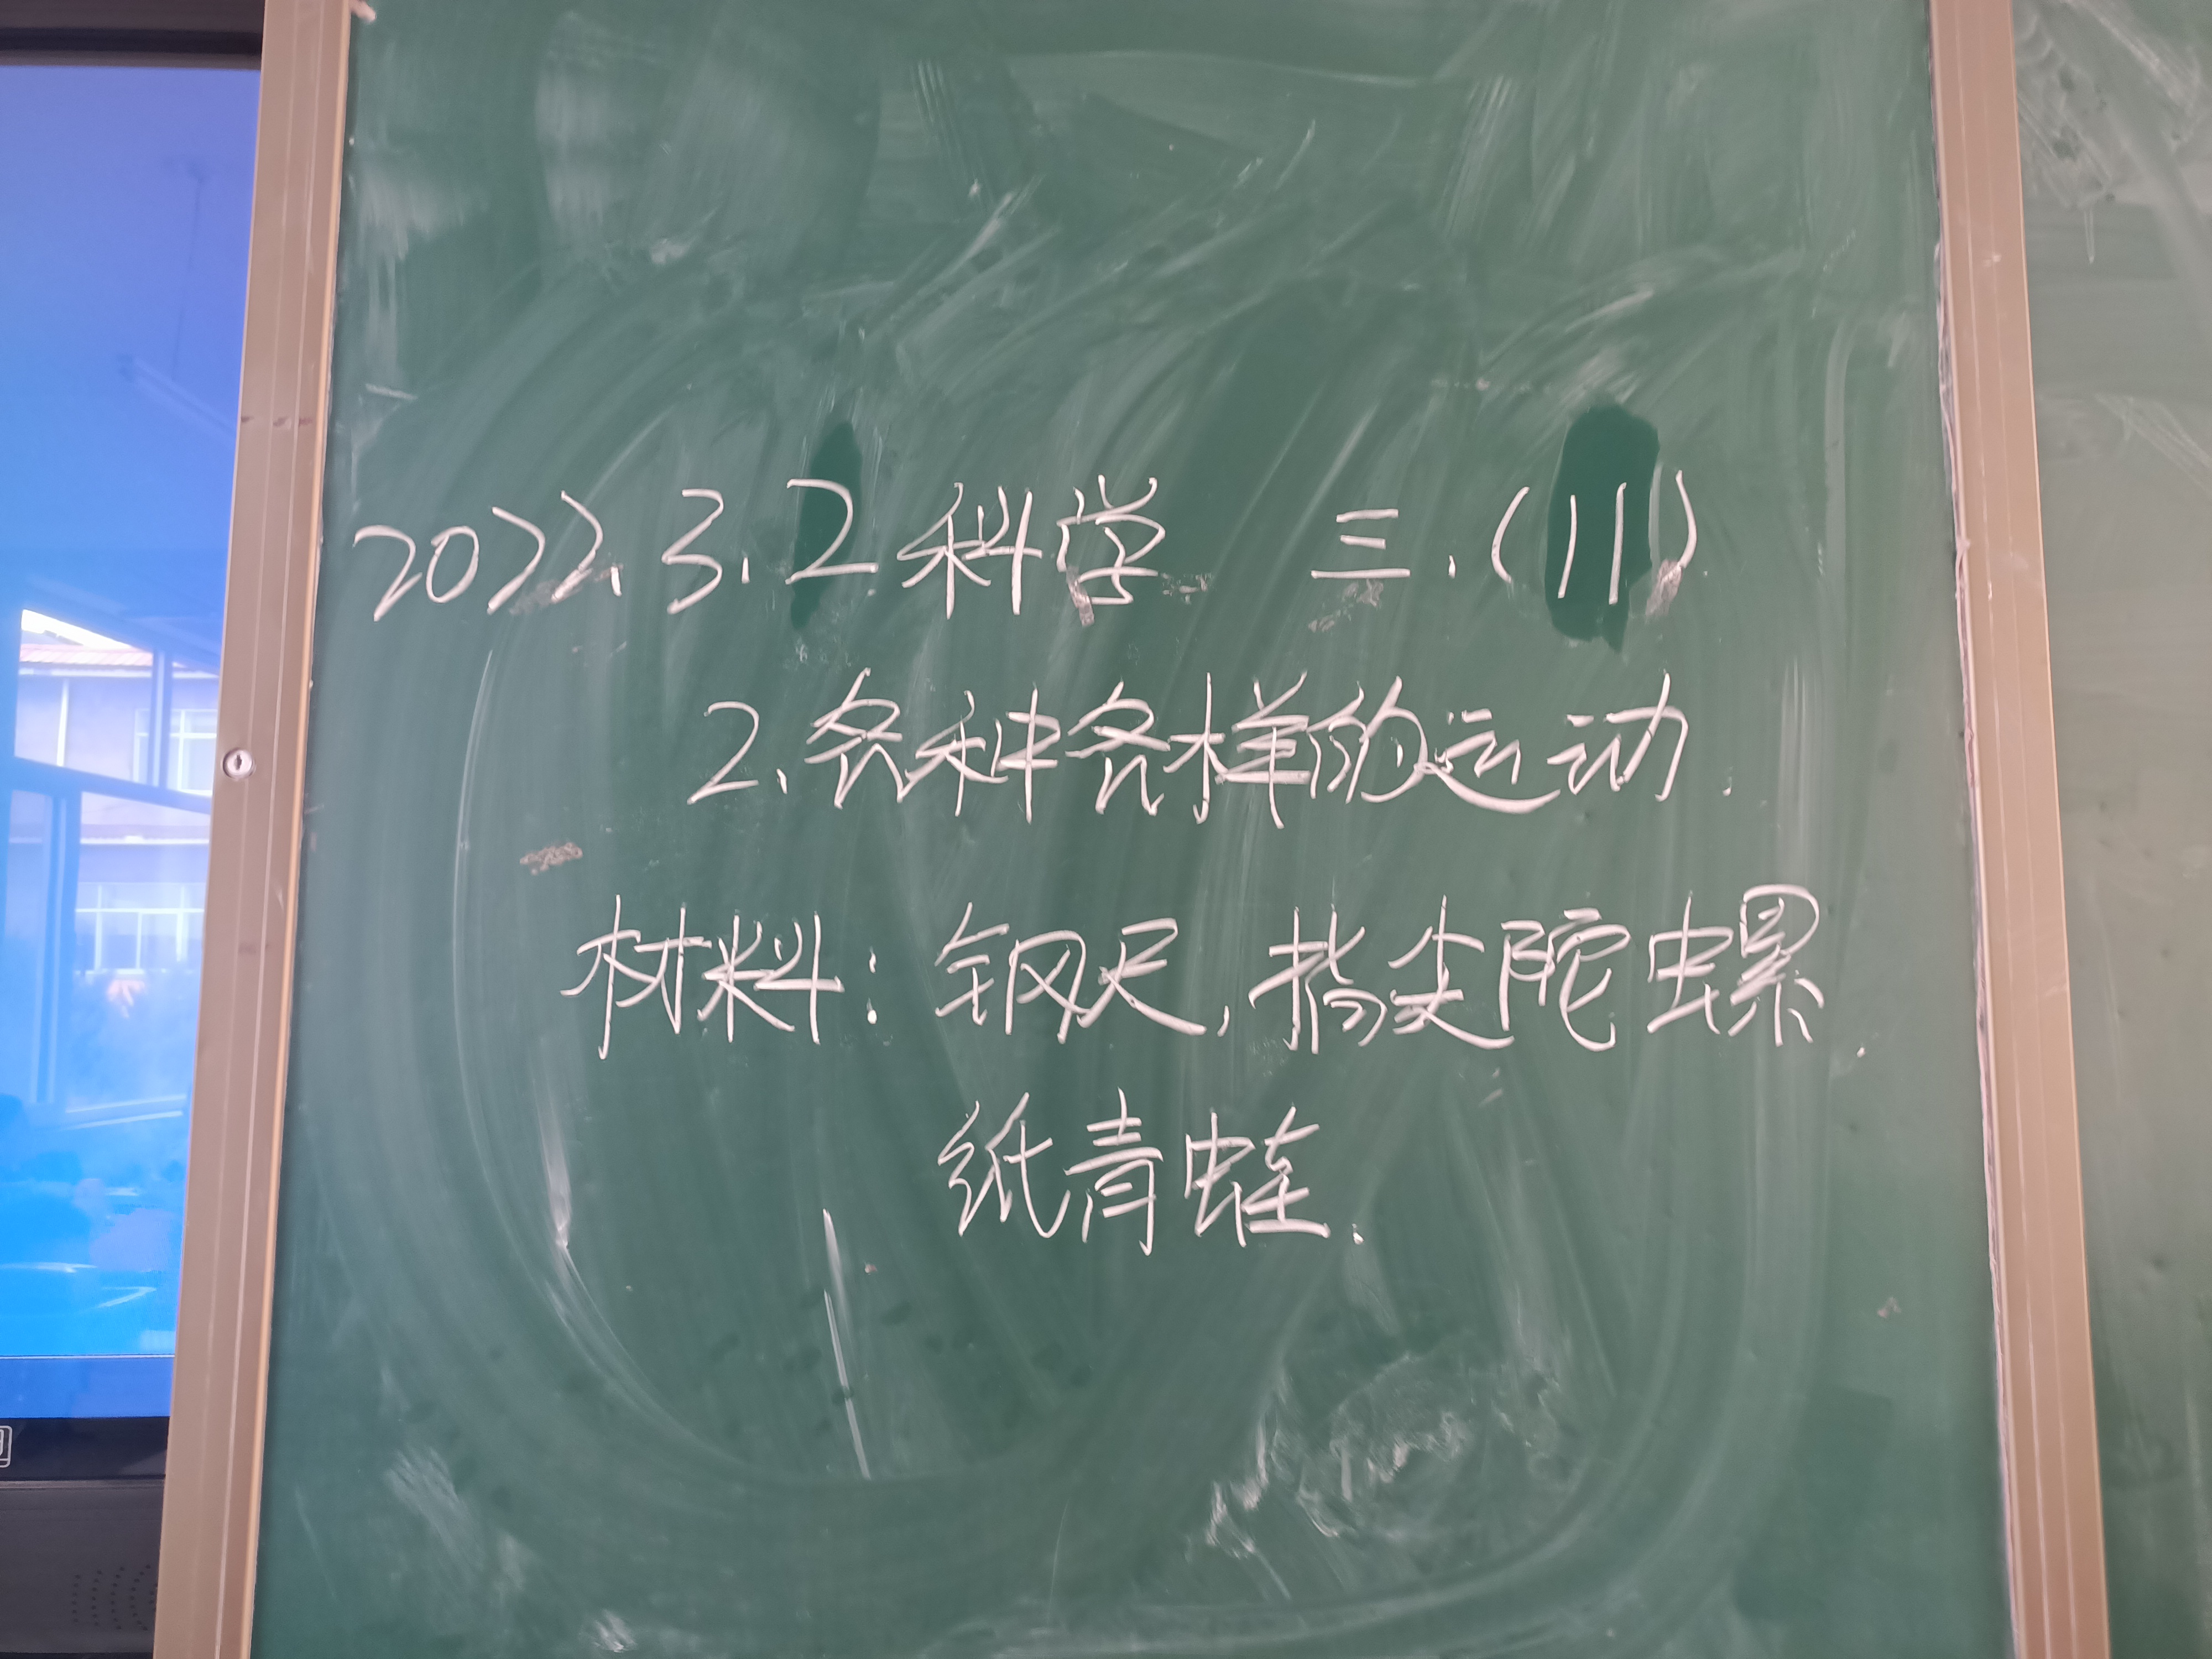 2022.3.2科学 三.(11)
2.各种各样的运动.
材料：钢尺,指尖陀螺.
纸青蛙.